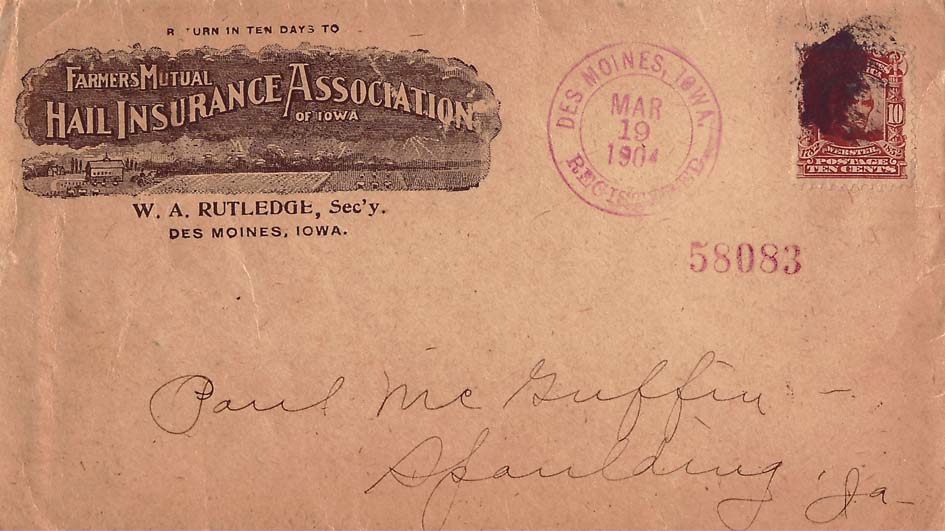 RETURN IN TEN DAYS TO
FARMERS MUTUAL
HAIL INSURANCE ASSOCIATION
OF IOWA
W. A. RUTLEDGE, Sec'y.
DES MOINES, IOWA.
DES MOINES, IOWA.
MAR
19
1904
REGISTERED
10
WEBSTER
POSTAGE
TEN CENTS
58083
Paul McGuffin –
Spaulding, Ia –